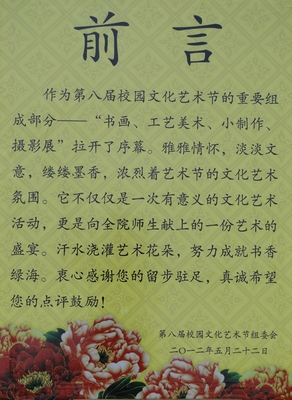 前言
作为第八届校园文化艺术节的重要组
成部分——“书画、工艺美术、小制作、
摄影展”拉开了序幕。雅雅情怀，淡淡文
意，缕缕墨香，浓烈着艺术节的文化艺术
氛围。它不仅仅是一次有意义的文化艺术
活动，更是向全院师生献上的一份艺术的
盛宴。汗水浇灌艺术花朵，努力成就书香
绿海。衷心感谢您的留步驻足，真诚希望
您的点评鼓励！
第八届校园文化艺术节组委会
二〇一二年五月二十二日